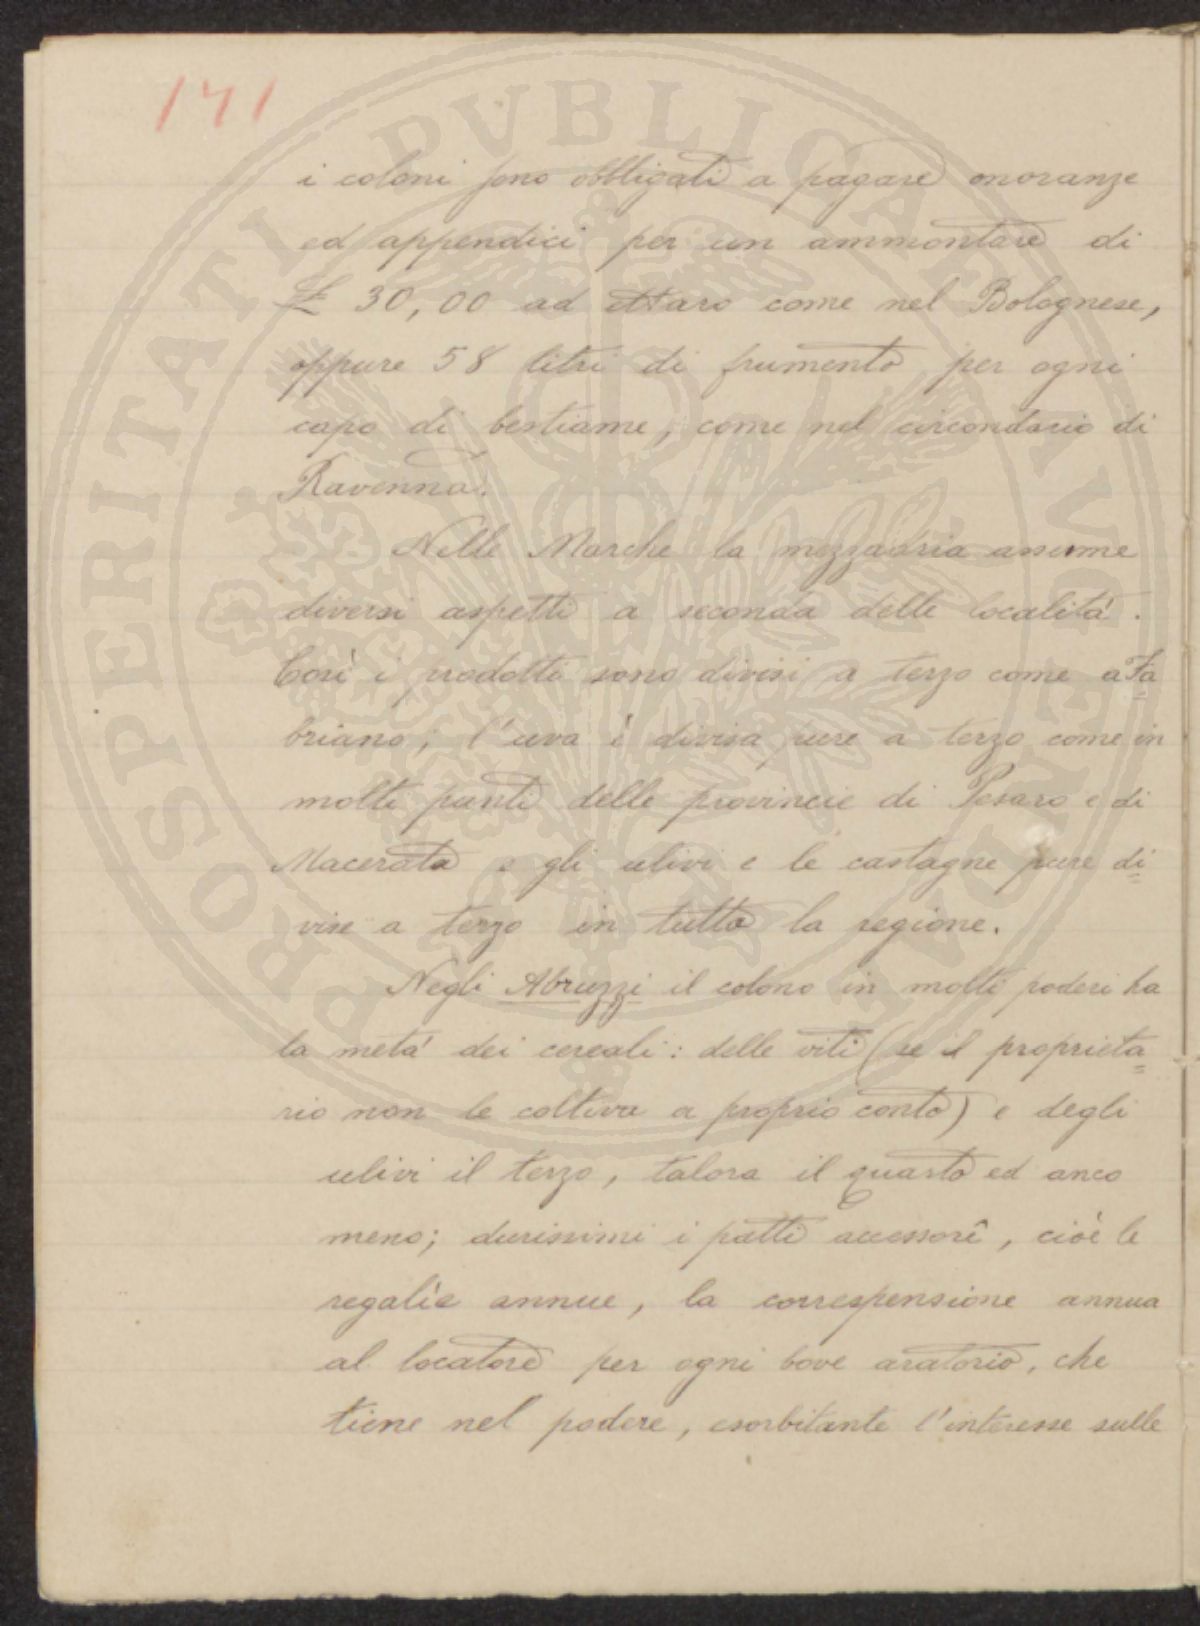 141
i coloni sono obbligati a pagare onoranze
ed appendici per un ammontare di
£ 30,00 ad ettaro come nel Bolognese,
oppure 58 litri di frumento per ogni
capo di bestiame, come nel circondario di
Ravenna.
Nelle Marche la mezzadria assume
diversi aspetti a seconda delle località.
Così i prodotti sono divisi a terzo come a Fa
briano; l'uva è divisa pure a terzo come in
molti punti delle provincie di Pesaro e di
Macerata e gli ulivi e le castagne pure di=
vise a terzo in tutta la regione.
Negli Abruzzi il colono in molti poderi ha
la metá dei cereali: delle viti (se il proprieta=
rio non le coltiva a proprio conto) e degli
ulivi il terzo, talora il quarto ed anco
meno; durissimi i patti accessorî, cioè le
regalìe annue, la correspensione annua
al locatore per ogni bove aratorio, che
tiene nel podere, esorbitante l'interesse sulle
PROSPERITATI PVBLICAE AVGENDAE